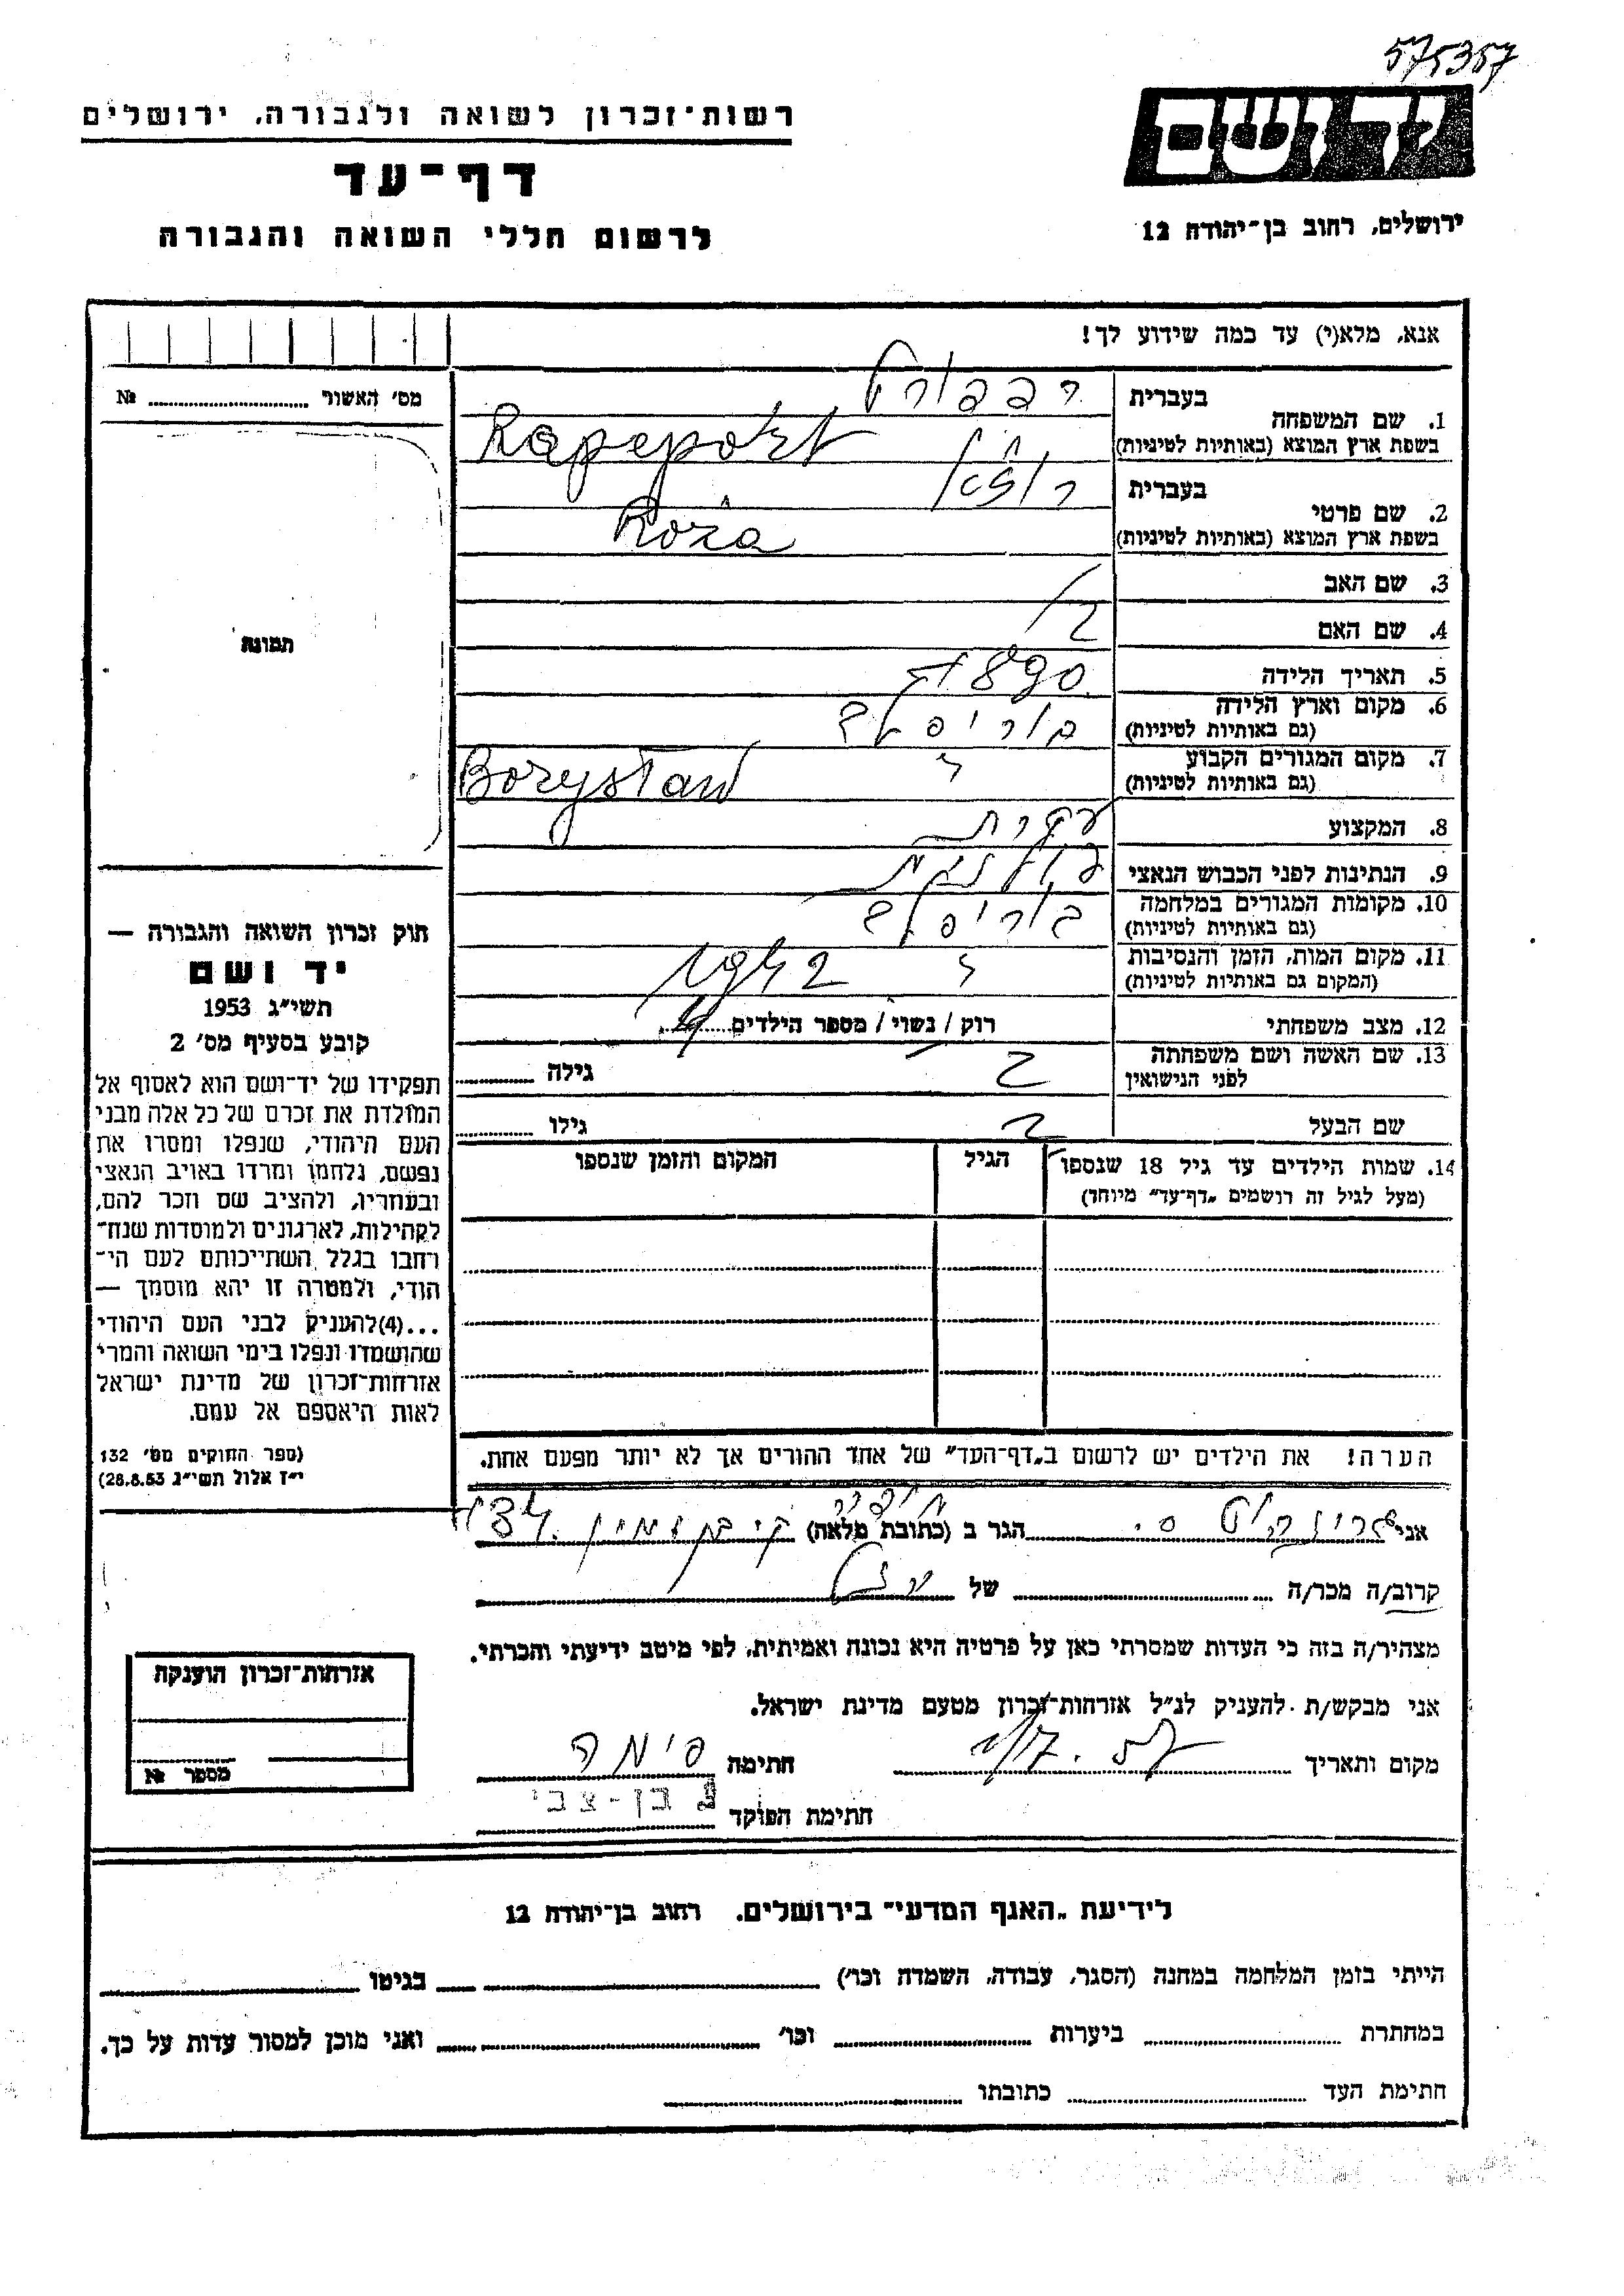 575357
יד ושם
ירושלים, רחוב בן־יהודה 12
רשות־זכרון לשואה ולגבורה, ירושלים
דף־עד
לרשום חללי השואה והגבורה
אנא, מלא(י) עד כמה שידוע לך!
מס׳ האשור № 
1. שם המשפחה
בעברית
רפפורט
בשפת ארץ המוצא (באותיות לטיניות)
Rapeport
2. שם פרטי
בעברית
רוז׳ה
בשפת ארץ המוצא (באותיות לטיניות)
Roża
3. שם האב
4. שם האם
5. תאריך הלידה
1890
6. מקום וארץ הלידה
(גם באותיות לטיניות)
בוריסלב
7. מקום המגורים הקבוע
(גם באותיות לטיניות)
Borysław
8. המקצוע
עקרת
9. הנתינות לפני הכבוש הנאצי
פולנית
10. מקומות המגורים במלחמה
(גם באותיות לטיניות)
בוריסלב
11. מקום המות, הזמן והנסיבות
(המקום גם באותיות לטיניות)
1942
12. מצב משפחתי
רוק / נשוי / מספר הילדים
13. שם האשה ושם משפחתה
לפני הנישואין
גילה
שם הבעל
גילו
14. שמות הילדים עד גיל 18 שנספו
(מעל לגיל זה רושמים „דף־עד״ מיוחד)
הגיל
המקום והזמן שנספו
הערה! את הילדים יש לרשום ב„דף־העד״ של אחד ההורים אך לא יותר מפעם אחת.
תמונה
חוק זכרון השואה והגבורה —
יד ושם
תשי״ג 1953
קובע בסעיף מס׳ 2
תפקידו של יד־ושם הוא לאסוף אל
המולדת את זכרם של כל אלה מבני
העם היהודי, שנפלו ומסרו את
נפשם, נלחמו ומרדו באויב הנאצי
ובעוזריו, ולהציב שם וזכר להם,
לקהילות, לארגונים ולמוסדות שנח־
רחבו בגלל השתייכותם לעם הי־
הודי, ולמטרה זו יהא מוסמך —
...(4) להעניק לבני העם היהודי
שהושמדו ונפלו בימי השואה והמרי
אזרחות־זכרון של מדינת ישראל
לאות היאספם אל עמם.
(ספר החוקים מס׳ 132
י״ז אלול תשי״ג 28.8.53)
אני ס. הגר ב (כתובת מלאה) חיפה
קרוב/ה מכר/ה של
מצהיר/ה בזה כי העדות שמסרתי כאן על פרטיה היא נכונה ואמיתית, לפי מיטב ידיעתי והכרתי.
אני מבקש/ת להעניק לנ״ל אזרחות־זכרון מטעם מדינת ישראל.
מקום ותאריך
חתימה סימה
חתימת הפוקד בן-צבי
אזרחות־זכרון הוענקה
מספר №
לידיעת „האגף המדעי״ בירושלים. רחוב בן־יהודה 12
הייתי בזמן המלחמה במחנה (הסגר, עבודה, השמדה וכו׳) בגיטו
במחתרת ביערות וכו׳ ואני מוכן למסור עדות על כך.
חתימת העד כתובתו